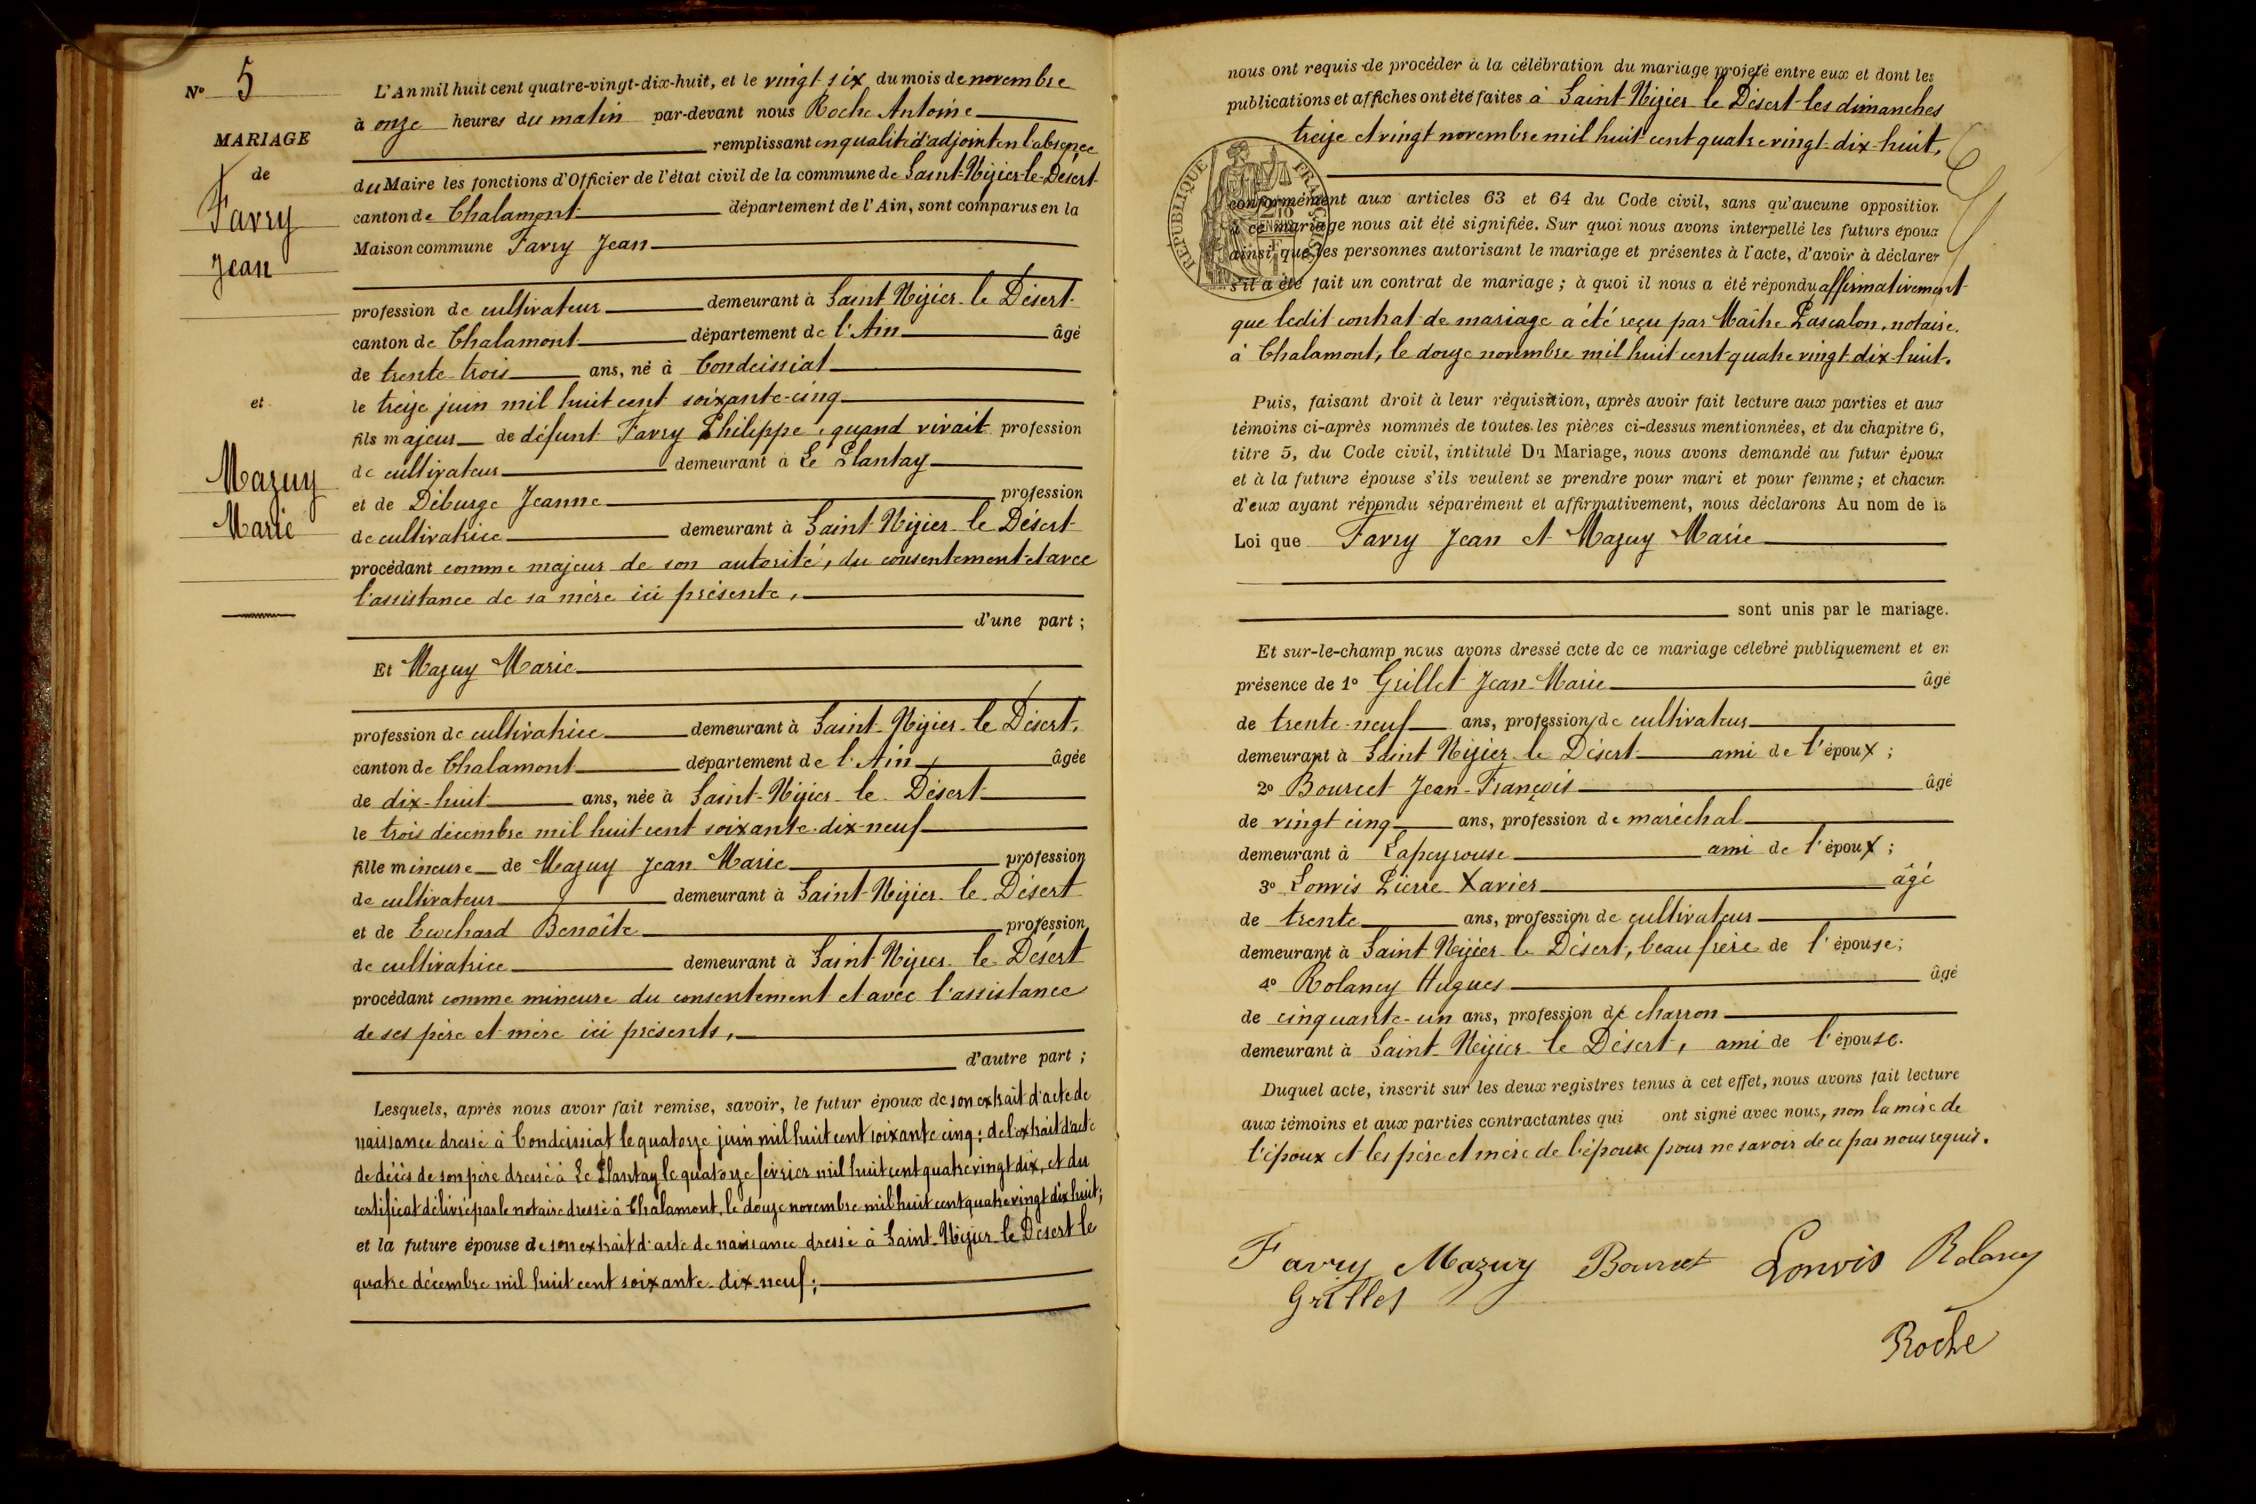 N° 5
MARIAGE
de
Favry
Jean
et
Mazuy
Marie
L'An mil huit cent quatre-vingt-dix-huit, et le vingt-six du mois de novembre
à onze heures du matin par-devant nous Roche Antoine
remplissant en qualité d'adjoint en l'absence
du Maire les fonctions d'Officier de l'état civil de la commune de Saint-Nizier-le-Désert
canton de Chalamont département de l'Ain, sont comparus en la
Maison commune Favry Jean
profession de cultivateur demeurant à Saint Nizier le Désert
canton de Chalamont département de l'Ain âgé
de trente trois ans, né à Condeissiat
le treize juin mil huit cent soixante-cinq
fils majeur de défunt Favry Philippe, quand vivait profession
de cultivateur demeurant à Le Plantay
et de Déburge Jeanne profession
de cultivatrice demeurant à Saint Nizier le Désert
procédant comme majeur de son autorité, du consentement et avec
l'assistance de sa mère ici présente,
d'une part ;
Et Mazuy Marie
profession de cultivatrice demeurant à Saint-Nizier-le Désert,
canton de Chalamont département de l'Ain âgée
de dix-huit ans, née à Saint-Nizier le Désert
le trois décembre mil huit cent soixante-dix-neuf
fille mineure de Mazuy Jean Marie profession
de cultivateur demeurant à Saint-Nizier le Désert
et de Euchard Benoîte profession
de cultivatrice demeurant à Saint-Nizier le Désert
procédant comme mineure du consentement et avec l'assistance
de ses père et mère ici présents,
d'autre part ;
Lesquels, après nous avoir fait remise, savoir, le futur époux de son extrait d'acte de
naissance dressé à Condeissiat le quatorze juin mil huit cent soixante cinq ; de l'extrait d'acte
de décès de son père dressé à Le Plantay le quatorze février mil huit cent quatre vingt dix, et du
certificat délivré par le notaire dressé à Chalamont, le douze novembre mil huit cent quatre vingt dix huit ;
et la future épouse de son extrait d'acte de naissance dressé à Saint-Nizier le Désert le
quatre décembre mil huit cent soixante-dix-neuf ;
nous ont requis de procéder à la célébration du mariage projeté entre eux et dont les
publications et affiches ont été faites à Saint-Nizier le Désert les dimanches
treize et vingt novembre mil huit cent quatre vingt-dix-huit,
RÉPUBLIQUE FRANÇAISE
conformément aux articles 63 et 64 du Code civil, sans qu'aucune opposition
à ce mariage nous ait été signifiée. Sur quoi nous avons interpellé les futurs époux
ainsi que les personnes autorisant le mariage et présentes à l'acte, d'avoir à déclarer
s'il a été fait un contrat de mariage ; à quoi il nous a été répondu affirmativement
que ledit contrat de mariage a été reçu par Maître Pascalon, notaire,
à Chalamont, le douze novembre mil huit cent quatre vingt dix-huit.
Puis, faisant droit à leur réquisition, après avoir fait lecture aux parties et aux
témoins ci-après nommés de toutes les pièces ci-dessus mentionnées, et du chapitre 6,
titre 5, du Code civil, intitulé Du Mariage, nous avons demandé au futur époux
et à la future épouse s'ils veulent se prendre pour mari et pour femme ; et chacun
d'eux ayant répondu séparément et affirmativement, nous déclarons Au nom de la
Loi que Favry Jean et Mazuy Marie
sont unis par le mariage.
Et sur-le-champ nous avons dressé acte de ce mariage célébré publiquement et en
présence de 1° Grillet Jean-Marie âgé
de trente-neuf ans, profession de cultivateur
demeurant à Saint Nizier le Désert ami de l'époux ;
2° Bourcet Jean-François âgé
de vingt cinq ans, profession de maréchal
demeurant à Lapeyrouse ami de l'époux ;
3° Lonvis Pierre Xavier âgé
de trente ans, profession de cultivateur
demeurant à Saint Nizier le Désert, beau frère de l'épouse ;
4° Rolancy Hugues âgé
de cinquante-un ans, profession de charron
demeurant à Saint-Nizier le Désert, ami de l'épouse.
Duquel acte, inscrit sur les deux registres tenus à cet effet, nous avons fait lecture
aux témoins et aux parties contractantes qui ont signé avec nous, non la mère de
l'époux et les père et mère de l'épouse pour ne savoir de ce par nous requis.
Favry Mazuy Bourcet Lonvis Rolancy
Grillet
Roche